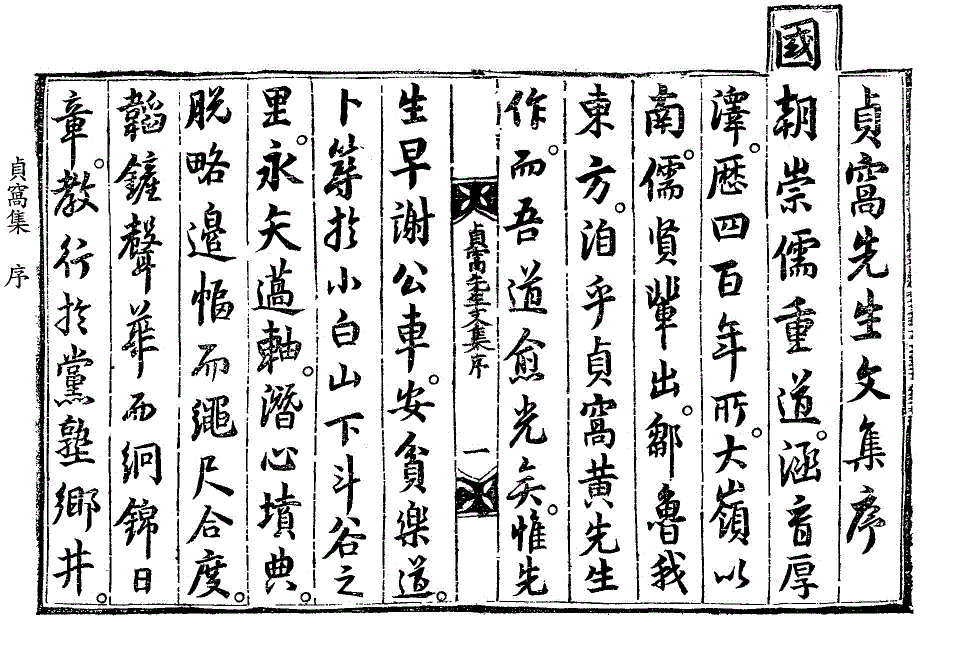 貞窩先生文集序
國朝崇儒重道。涵育厚
澤。歷四百年所。大嶺以
南。儒賢輩出。鄒魯我
東方。洎乎貞窩黃先生
作。而吾道愈光矣。惟先
貞窩先生文集序
一
生早謝公車。安貧樂道。
卜築於小白山下斗谷之
里。永矢薖軸。潛心墳典。
脫略邊幅而繩尺合度。
韜鏟聲華而絅錦日
章。敎行於黨塾鄕井。
貞窩集 序